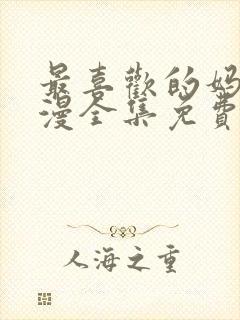 最喜歡的妈
漫全集免費
人海之重